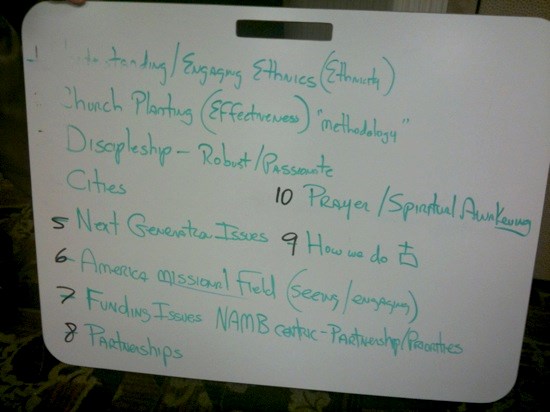 Engaging Ethnics (Ethnicity)
Church Planting (Effectiveness) "methodology"
Discipleship - Robust/Passionate
Cities
10 Prayer/Spiritual Awakening
5 Next Generation Issues
9 How we do
6 America missional Field (seeing/engaging)
7 Funding Issues NAMB centric - Partnership/Priorities
8 Partnerships